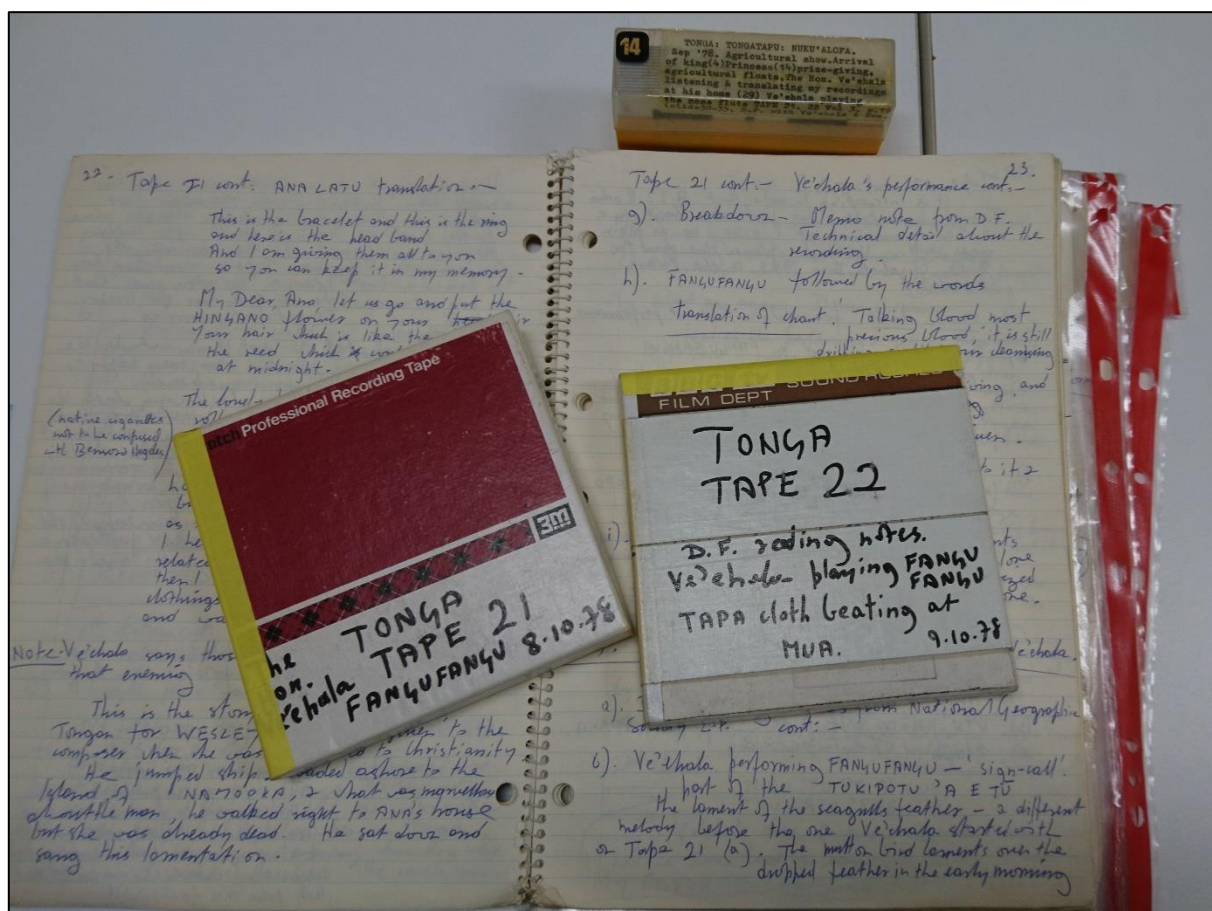 14
TONGA: TONGATAPU: NUKU'ALOFA.
Sep '78. Agricultural show.Arrival
of king(4)Princess(14)prize-giving,
agricultural floats.The Hon. Ve'ehala
listening & translating my recordings
at his home (29) Ve'ehala playing
the nose flute TAPE 21. 22
22. Tape 21 cont: ANA LATU translation:-
This is the bracelet and this is the ring
and here is the head band
And I am giving them all to you
so you can keep it in my memory.
My Dear, Ana, let us go and put the
HINGANO flower on your hair
Your hair which is like the
the reed which is
at midnight.
The
(native cigarettes
not to be confused
with Benson & Hedges)
as
I he
related
then I
clothings
and wa
Note- Ve'ehala sang thos
that evening
This is the story
Tongan for WESLEY
composer when he was to Christianity
He jumped ship waded ashore to the
Island of NAMOOKA, & what was marvellous
about the man, he walked right to ANA's house
but she was already dead. He sat down and
sang this lamentation.
23.
Tape 21 cont:- Ve'ehala's performance cont:-
g). Breakdown - Memo note from D.F.
Technical detail about the
recording.
h). FANGUFANGU followed by the words
translation of chant. 'Talking blood most
precious blood, it is still
cleansing
and
i).
from National Geographic
cont:-
b). Ve'ehala performing FANGUFANGU - 'sign-call'.
part of the TUKIPOTU 'A E TU
The lament of the seagulls feather - a different
melody before the one Ve'ehala started with
on Tape 21 (a). The mutton bird laments over the
dropped feather in the early morning
otch Professional Recording Tape
3m
TONGA
TAPE 21
he
on.
ve'ehala FANGUFANGU 8.10.78
FILM DEPT SOUND RECORD
TONGA
TAPE 22
D.F. reading notes.
Ve'ehala playing FANGU
FANGU
TAPA cloth beating at
MUA. 9.10.78